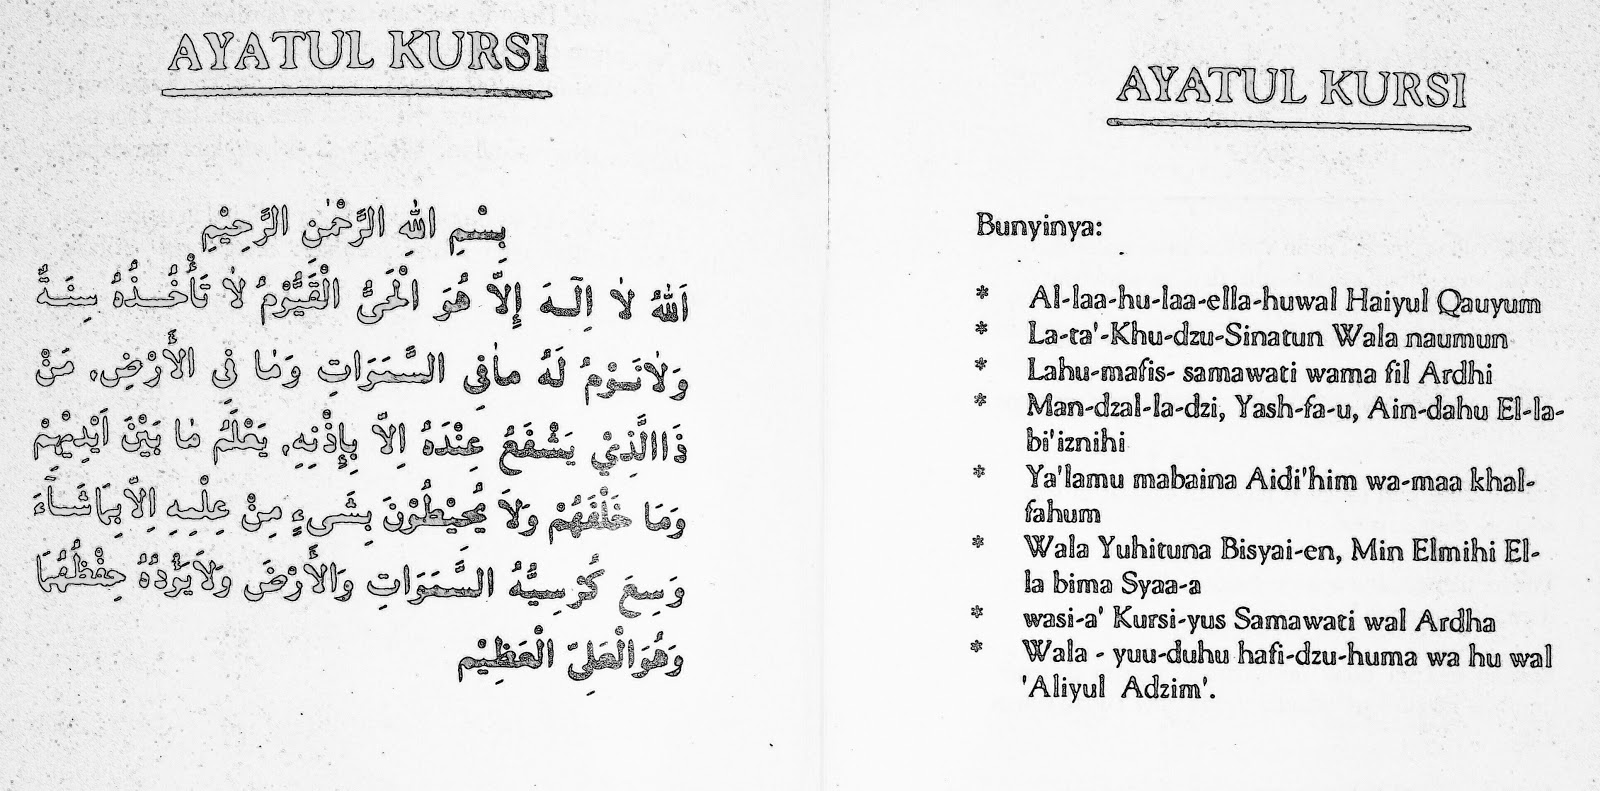 AYATUL KURSI
بِسْمِ اللهِ الرَّحْمٰنِ الرَّحِيْمِ
اَللهُ لاٰ اِلٰـهَ إِلاَّ هُوَ الْحَىُّ الْقَيُّوْمُ لاٰ تَأْخُـذُهُ سِنَـةٌ
وَلاٰنَـوْمٌ لَهُ مافِى السَّمَوَاتِ وَمَا فِي الأَرْضِ. مَنْ
ذَاالَّذِيْ يَشْفَعُ عِنْدَهُ اِلاَّ بِإِذْنِهِ. يَعْلَمُ مَا بَيْنَ اَيْدِيْهِمْ
وَمَا خَلْفَهُمْ وَلاَ يُحِيْطُوْنَ بِشَىْءٍ مِنْ عِلْمِهِ اِلاَّ بِمَاشَآءَ
وَسِعَ كُرْسِيُّهُ السَّمَوَاتِ وَالأَرْضَ وَلاَيَؤُدُهُ حِفْظُهُمَا
وَهُوَالْعَلِىُّ الْعَظِيْمِ
AYATUL KURSI
Bunyinya:
* Al-laa-hu-laa-ella-huwal Haiyul Qauyum
* La-ta'-Khu-dzu-Sinatun Wala naumun
* Lahu-mafis- samawati wama fil Ardhi
* Man-dzal-la-dzi, Yash-fa-u, Ain-dahu El-la-
bi'iznihi
* Ya'lamu mabaina Aidi'him wa-maa khal-
fahum
* Wala Yuhituna Bisyai-en, Min Elmihi El-
la bima Syaa-a
* wasi-a' Kursi-yus Samawati wal Ardha
* Wala - yuu-duhu hafi-dzu-huma wa hu wal
'Aliyul Adzim'.